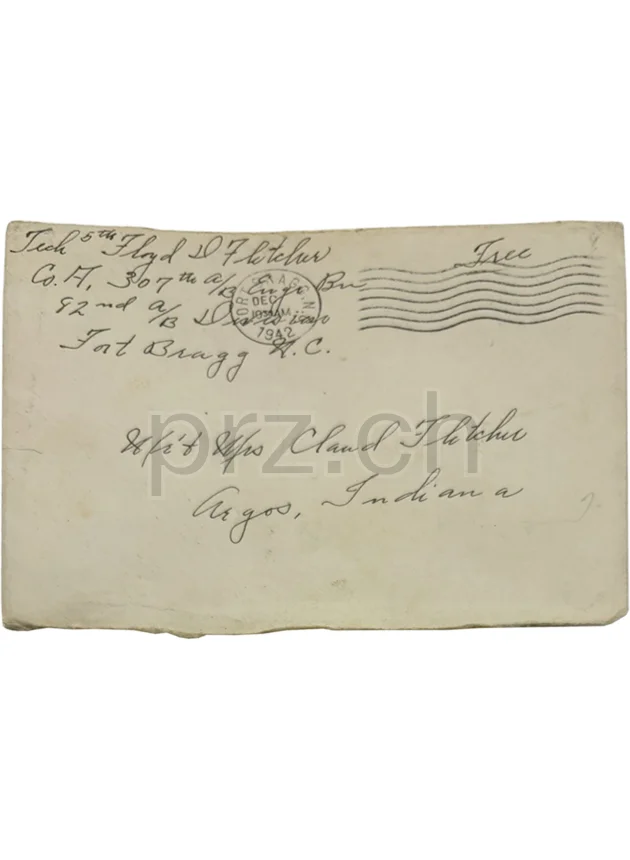 Tech 5th Floyd D Fletcher
Co. A, 307th A/B Engr Bn,
82nd A/B Division
Fort Bragg N.C.
Free
FORT BRAGG N.C.
DEC
1942
Mr & Mrs Claud Fletcher
Argos, Indiana
prz.ch